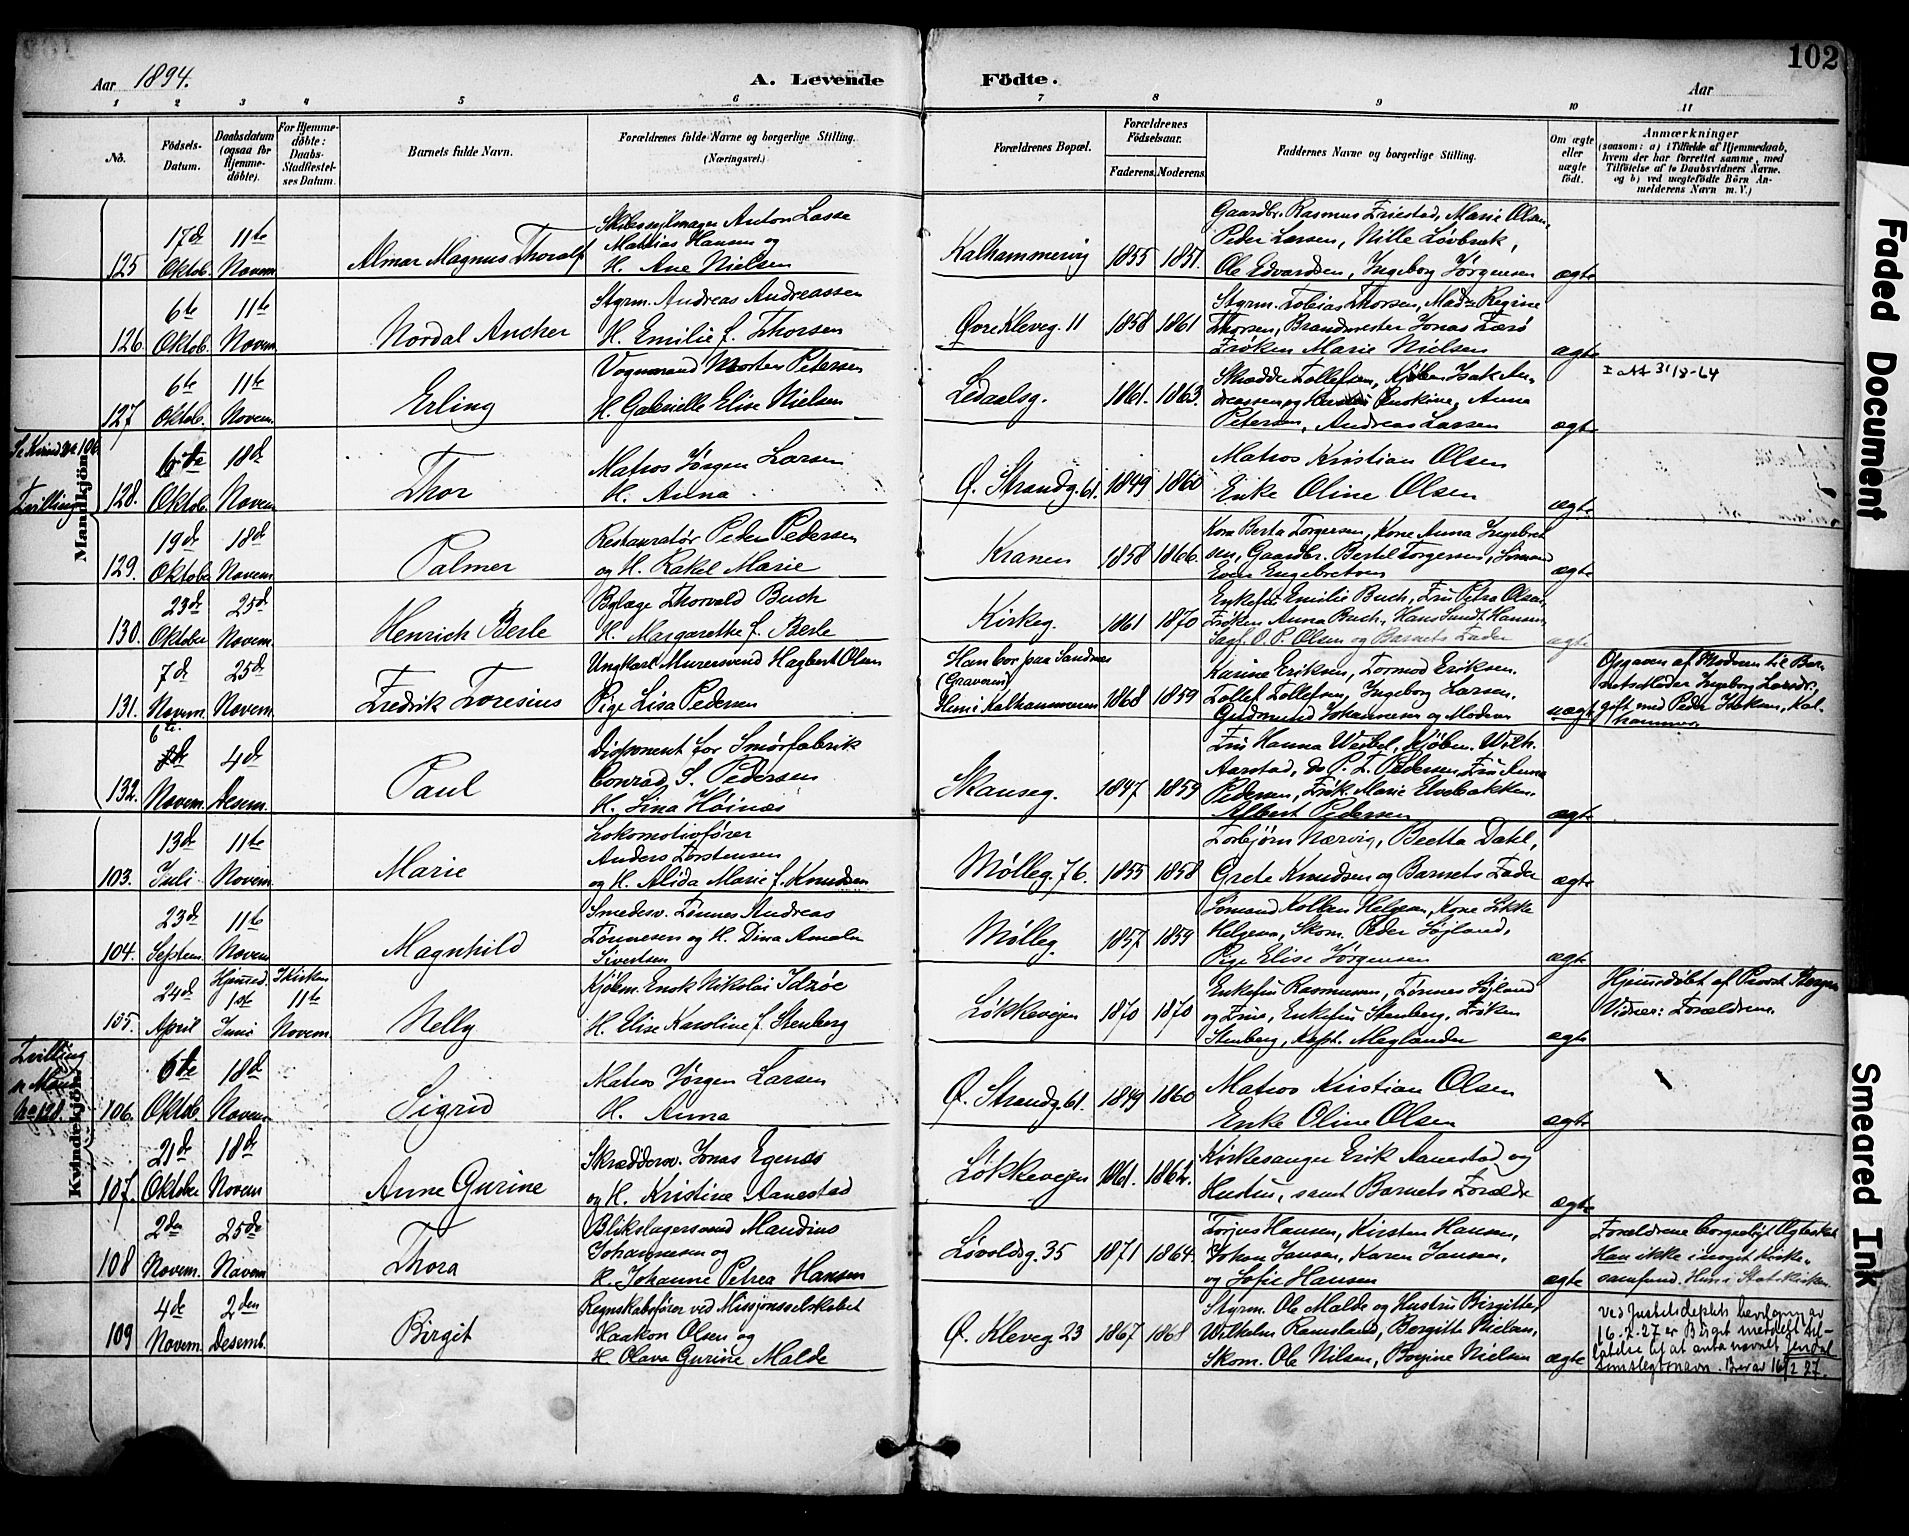 102
Aar 1894.
A. Levende Födte.
Aar
1 2 3 4 5 6 7 8 9 10 11
No.
Födsels-Datum.
Daabsdatum (ogsaa for Hjemme-döbte).
For Hjemme-döbte: Daabs-Stadfæstel-ses Datum.
Barnets fulde Navn.
Forældrenes fulde Navne og borgerlige Stilling. (Næringsvei.)
Forældrenes Bopæl.
Forældrenes Födselsaar.
Faderens. Moderens.
Faddernes Navne og borgerlige Stilling.
Om ægte eller uægte födt.
Anmærkninger
(saasom: a) i Tilfælde af Hjemmedaab, hvem der har forrettet samme, med Tilföielse af to Daabsvidners Navne, og b) ved uægtefödte Börn Anmelderens Navn m. V.)
Mandkjön
125 17de Oktob. 11te Novem. Almar Magnus Thoralf
Anton Lasse
Mathias Hansen og
H. Ane Nielsen
Kalhammervig 1855 1857.
Gaardbr. Rasmus Friestad, Marie Olsen,
Peder Larsen, Nille Løvbræk,
Ole Edvardsen, Ingeborg Jørgensen ægte
126. 6te Oktob. 11te Novem. Nordal Ancher
Styrm. Andreas Andreassen
H. Emilie f. Thorsen
Øvre Kleveg. 11 1858 1861
Styrm. Tobias Thorsen, Regine
Thorsen, Brandmester Jonas
Frøken Marie Nielsen ægte
127 6te Oktob. 11te Novem. Erling
Vognmand Morten Petersen
H. Gabrielle Elise Nielsen
Ledaalsg. 1861. 1863.
Tollefsen, Isak An-
dreassen og Anna
Petersen, Andreas Larsen ægte
31/8-64
Tvilling
128. 6te Oktob. 18de Novem. Thor
Matros Jørgen Larsen
H. Anna
Ø. Strandg. 61. 1849 1860
Matros Kristian Olsen
Enke Oline Olsen ægte
129. 19de Oktober 18de Novem. Palmer
Restauratør Peder Pedersen
og H. Rakel Marie
Kranen 1858 1866.
Kone Berta Torgersen, Kone Anna Ingebret
sen, Gaardbr. Bertil Torgersen, Sømand
Even Engebretsen ægte
130. 23de Oktober 25de Novem. Henrich Berle
Thorvald Buch
H. Margarethe f. Berle
Kirkeg. 1861 1870
Enkefru Emilie Buch, Fru Petra Olsen,
Frøken Anna Buch, Hans Sundt Hansen,
Sagf. O. P. Olsen og Barnets Fader ægte
131. 7de Novem. 25de Novem. Fredrik Toresius
Ungkarl Murersvend Hagbert Olsen
Pige Lisa Pedersen
Han bor paa Sandnes
(Graveren)
Hun i Kalhammeren 1868 1859
Karine Eriksen, Tormod Eriksen.
Tollef Tollefsen, Ingeborg Larsen.
Gudmund Johannesen og Moderen uægte
Opgaven af Modern til Bar-
Ingeborg
gift med Peder Isaksen, Kal-
hammer.
132. 6te Novem. 4de Desem. Paul
Disponent for Smørfabrik
Conrad S. Pedersen
H. Lina Høinæs
Skanseg. 1847 1859
Fru Hanna Weibel, Kjøbm. Wilh.
Aarstad, do P. T. Pedersen, Fru Anna
Pedersen, Frøk. Marie Elvebakken.
Albert Pedersen ægte
Kvindekjön
103. 13de Juli 11te Novem. Marie
Lokomotivfører
Anders Torstensen
og H. Alida Marie f. Knudsen
Mølleg. 76. 1855 1858
Torbjørn Nærvig, Beetta Dahl,
Grete Knudsen og Barnets Fader ægte
104. 23de Septem. 11te Novem. Magnhild
Smedesv. Tønnes Andreas
Tønnesen og H. Dina Amalie
Sivertsen
Mølleg. 1857 1859
Sømand Kolben Helgesen, Kone
Helgesen, Skom. Peder Søiland,
Pige Elise Jørgensen ægte
105. 24de April Hjemmed. 1ste Juni I Kirken 11te Novem. Nelly
Kjøbm. Enok Nikolai Idsøe
H. Elise Karoline f. Stenberg
Løkkevejen 1870 1870
Enkefru Rasmussen, Tønnes Søiland
og Frue, Enkefru Stenberg, Frøken
Stenberg, Kapt. Meglander ægte
Hjemmedøbt af Provst
Vidner: Forældrene.
Tvilling
No 128.
106. 6te Oktob. 18de Novem. Sigrid
Matros Jørgen Larsen
H. Anna
Ø. Strandg. 61. 1849 1860
Matros Kristian Olsen
Enke Oline Olsen ægte
107. 21de Oktober 18de Novem. Anne Gurine
Skræddersv. Jonas Egenæs
og H. Kristine Aanestad
Løkkevejen 1861. 1862.
Kirkesanger Erik Aanestad og
Hustru, samt Barnets Forældre ægte
108 2den Novem. 25de Novem. Thora
Blikslagersvend Maudius
Johannesen og
H. Johanne Petrea Hansen
Løvoldsg. 35 1871 1864.
Torjus Hansen, Kirsten Hansen,
Johan Jansen, Karen Jansen,
og Sofie Hansen ægte
Forældrene borgerligt Ægteskab
Han ikke i noget Kirke-
samfund. Hun i Statskirken.
109 4de Novem. 2den Desemb. Birgit
Regnskabsfører ved Missjonsselskabet
Haakon Olsen og
H. Olava Gurine Malde
Ø. Kleveg 23 1867 1868
Styrm. Ole Malde og Hustru Birgitte,
Wilhelm Ramsland, Bergitte Nielsen,
Skom. Ole Nilsen, Nielsen ægte
Ved Justitsdeptets bevilgning av
16-2-27 er Birgit meddelt til-
latelse til at anta navnet
som slegtsnavn. Brev av 16/2 27.
Faded Document
Smeared Ink